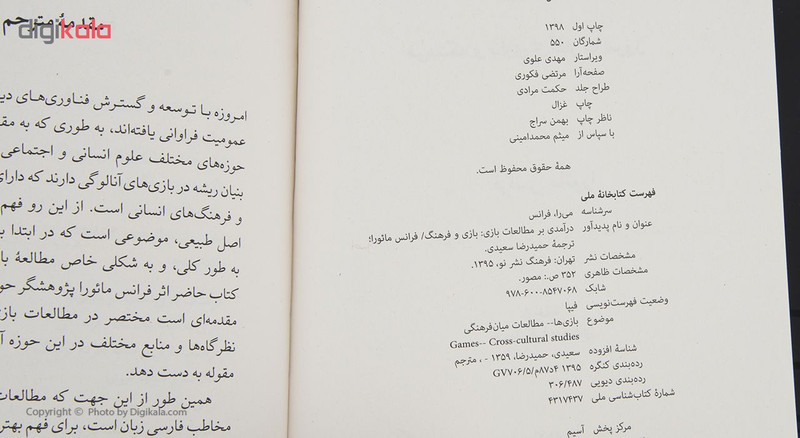 چاپ اول ۱۳۹۸
شمارگان ۵۵۰
ویراستار مهدی علوی
صفحه‌آرا مرتضی فکوری
طراح جلد حکمت مرادی
چاپ غزال
ناظر چاپ بهمن سراج
با سپاس از میثم محمدامینی
همهٔ حقوق محفوظ است.
فهرست کتابخانهٔ ملی
سرشناسه می‌را، فرانس
عنوان و نام پدیدآور درآمدی بر مطالعات بازی: بازی و فرهنگ/ فرانس مائورا؛
ترجمهٔ حمیدرضا سعیدی.
مشخصات نشر تهران: فرهنگ نشر نو، ۱۳۹۵.
مشخصات ظاهری ۳۵۲ ص.: مصور.
شابک ۹۷۸-۶۰۰-۸۵۴۷-۰۶۸
وضعیت فهرست‌نویسی فیپا
موضوع بازی‌ها-- مطالعات میان‌فرهنگی
Games-- Cross-cultural studies
شناسهٔ افزوده سعیدی، حمیدرضا، ۱۳۵۹ - ، مترجم
رده‌بندی کنگره ۱۳۹۵ ۴د۸۷م/GV۷۰۶/۵
رده‌بندی دیویی ۳۰۶/۴۸۷
شمارهٔ کتاب‌شناسی ملی ۴۳۱۷۴۳۷
مرکز پخش آسیم
مقدمهٔ مترجم
digikala
امروزه با توسعه و گسترش فناوری‌های
عمومیت فراوانی یافته‌اند، به طوری که به
حوزه‌های مختلف علوم انسانی و اجتماعی
بنیان ریشه در بازی‌های آنالوگی دارند که دارای
و فرهنگ‌های انسانی است. از این رو فهم
اصل طبیعی، موضوعی است که در ابتدا
به طور کلی، و به شکلی خاص مطالعهٔ
کتاب حاضر اثر فرانس مائورا پژوهشگر
مقدمه‌ای است مختصر در مطالعات
نظرگاه‌ها و منابع مختلف در این حوزه
مقوله به دست دهد.
همین طور از این جهت که مطالعات
مخاطب فارسی زبان است، برای فهم بهتر
Copyright © Photo by Digikala.com